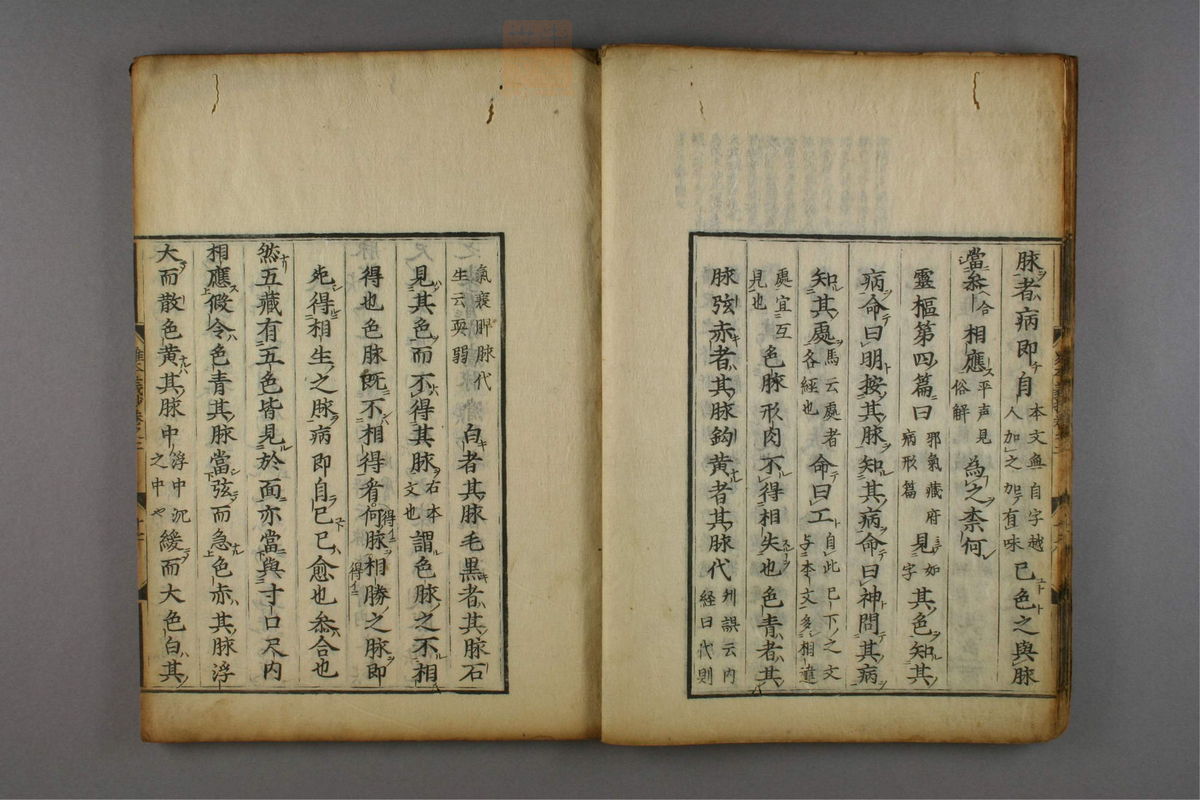 脉者病即自本文無自字越人加之加有味已色之與脉
當叅合相應平声見俗解為之柰何
靈樞第四篇曰邪氣藏府病形篇見如字其色知其
病命曰明按其脉知其病命曰神問其病
知其處馬云處者各経也命曰工自此已下之文与本文多相違
處宜互見也色脉形肉不得相失也色青者其
脉弦赤者其脉鈎黄者其脉代刋誤云内経曰代則
氣衰脾脉代生云耎弱白者其脉毛黒者其脉石
見其色而不得其脉右本文也謂色脉之不相
得也色脉既不相得看何脉相勝之脉即
死得相生之脉病即自已已愈也叅合也
然五藏有五色皆見於面亦當與寸口尺内
相應假令色青其脉當弦而急色赤其脉浮
大而散色黄其脉中浮中沉之中や緩而大色白其